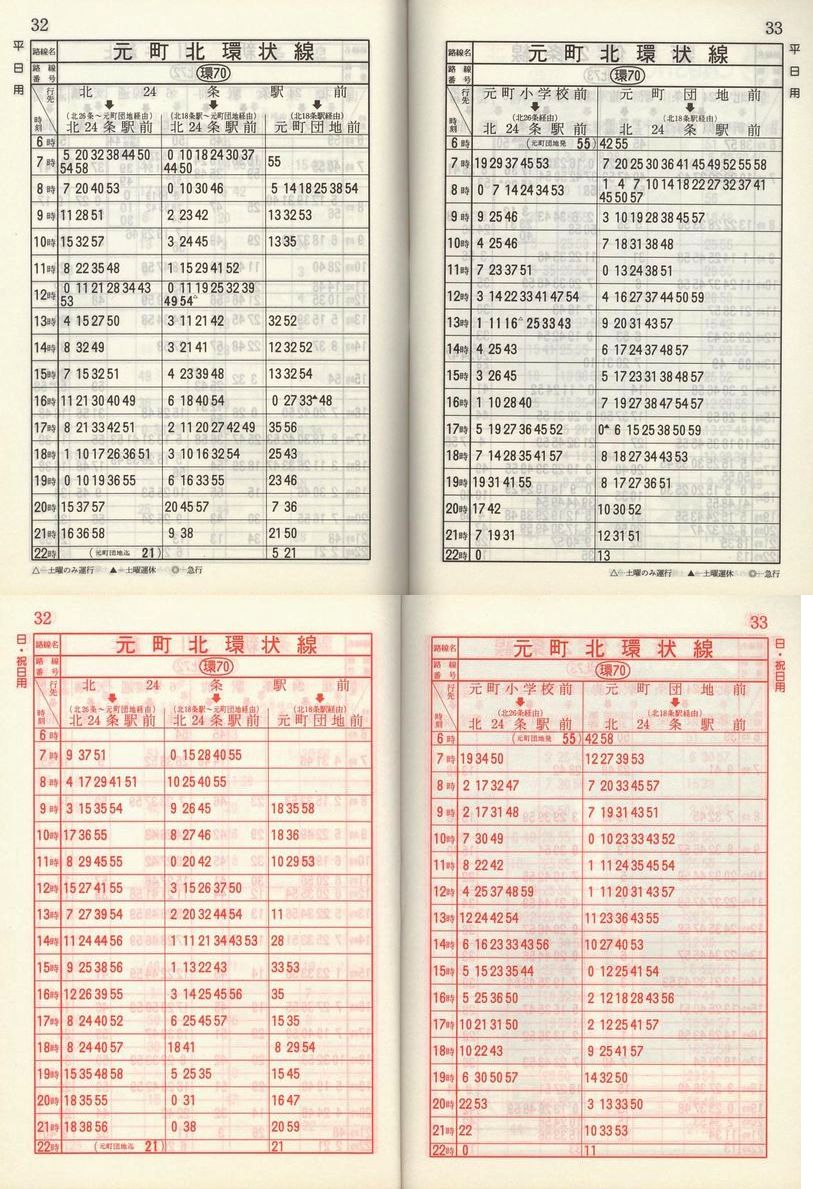 32
平日用
路線名 元町北環状線
路線番号 環70
行先 時刻
北24条駅前
(北26条～元町団地経由) (北18条駅～元町団地経由) (北18条駅経由)
北24条駅前 北24条駅前 元町団地前
6時
7時 5 20 32 38 44 50 0 10 18 24 30 37 55
54 58 44 50
8時 7 20 40 53 0 10 30 46 5 14 18 25 38 54
9時 11 28 51 2 23 42 13 32 53
10時 15 32 57 3 24 45 13 35
11時 8 22 35 48 1 15 29 41 52
12時 0 11 21 28 34 43 0 11 19 25 32 39
53 49 54△
13時 4 15 27 50 3 11 21 42 32 52
14時 8 32 49 3 21 41 12 32 52
15時 7 15 32 51 4 23 39 48 13 32 54
16時 11 21 30 40 49 6 18 40 54 0 27 33▲ 48
17時 8 21 33 42 51 2 11 20 27 42 49 35 56
18時 1 10 17 26 36 51 3 10 16 32 54 25 43
19時 0 10 19 36 55 6 16 33 55 23 46
20時 15 37 57 20 45 57 7 36
21時 16 36 58 9 38 21 50
22時 (元町団地迄 21) 5 21
△―土曜のみ運行 ▲―土曜運休 ◎―急行
33
平日用
路線名 元町北環状線
路線番号 環70
行先 時刻
元町小学校前 元町団地前
(北26条経由) (北18条駅経由)
北24条駅前 北24条駅前
6時 (元町団地発 55) 42 55
7時 19 29 37 45 53 7 20 25 30 36 41 45 49 52 55 58
8時 0 7 14 24 34 53 1 4 7 10 14 18 22 27 32 37 41
45 50 57
9時 9 25 46 3 10 19 28 38 45 57
10時 4 25 46 7 18 31 38 48
11時 7 23 37 51 0 13 24 38 51
12時 3 14 22 33 41 47 54 4 16 27 37 44 50 59
13時 1 11 16△ 25 33 43 9 20 31 43 57
14時 4 25 43 6 17 24 37 48 57
15時 3 26 45 5 17 23 31 38 48 57
16時 1 10 28 40 7 19 27 38 47 54 57
17時 5 19 27 36 45 52 0▲ 6 15 25 38 50 59
18時 7 14 28 35 41 57 8 18 27 34 43 53
19時 19 31 41 55 8 17 27 36 51
20時 17 42 10 30 52
21時 7 19 31 12 31 51
22時 0 13
△―土曜のみ運行 ▲―土曜運休 ◎―急行
32
日・祝日用
路線名 元町北環状線
路線番号 環70
行先 時刻
北24条駅前
(北26条～元町団地経由) (北18条駅～元町団地経由) (北18条駅経由)
北24条駅前 北24条駅前 元町団地前
6時
7時 9 37 51 0 15 28 40 55
8時 4 17 29 41 51 10 25 40 55
9時 3 15 35 54 9 26 45 18 35 58
10時 17 36 55 8 27 46 18 36
11時 8 29 45 55 0 20 42 10 29 53
12時 15 27 41 55 3 15 26 37 50
13時 7 27 39 54 2 20 32 44 54 11
14時 11 24 44 56 1 11 21 34 43 53 28
15時 9 25 38 56 1 13 22 43 33 53
16時 12 26 39 55 3 14 25 45 56 35
17時 8 24 40 52 6 25 45 57 15 35
18時 8 24 40 57 18 41 8 29 54
19時 15 35 48 58 5 25 35 15 45
20時 18 35 55 0 31 16 47
21時 18 38 56 0 38 20 59
22時 (元町団地迄 21) 21
33
日・祝日用
路線名 元町北環状線
路線番号 環70
行先 時刻
元町小学校前 元町団地前
(北26条経由) (北18条駅経由)
北24条駅前 北24条駅前
6時 (元町団地発 55) 42 58
7時 19 34 50 12 27 39 53
8時 2 17 32 47 7 20 33 45 57
9時 2 17 31 48 7 19 31 43 51
10時 7 30 49 0 10 23 33 43 52
11時 8 22 42 1 11 24 35 45 54
12時 4 25 37 48 59 1 11 20 31 43 57
13時 12 24 42 54 11 23 36 43 55
14時 6 16 23 33 43 56 10 27 40 53
15時 5 15 23 35 44 0 12 25 41 54
16時 5 25 36 50 2 12 18 28 43 56
17時 10 21 31 50 2 12 25 41 57
18時 10 22 43 9 25 41 57
19時 6 30 50 57 14 32 50
20時 22 53 3 13 33 50
21時 22 10 33 53
22時 0 11